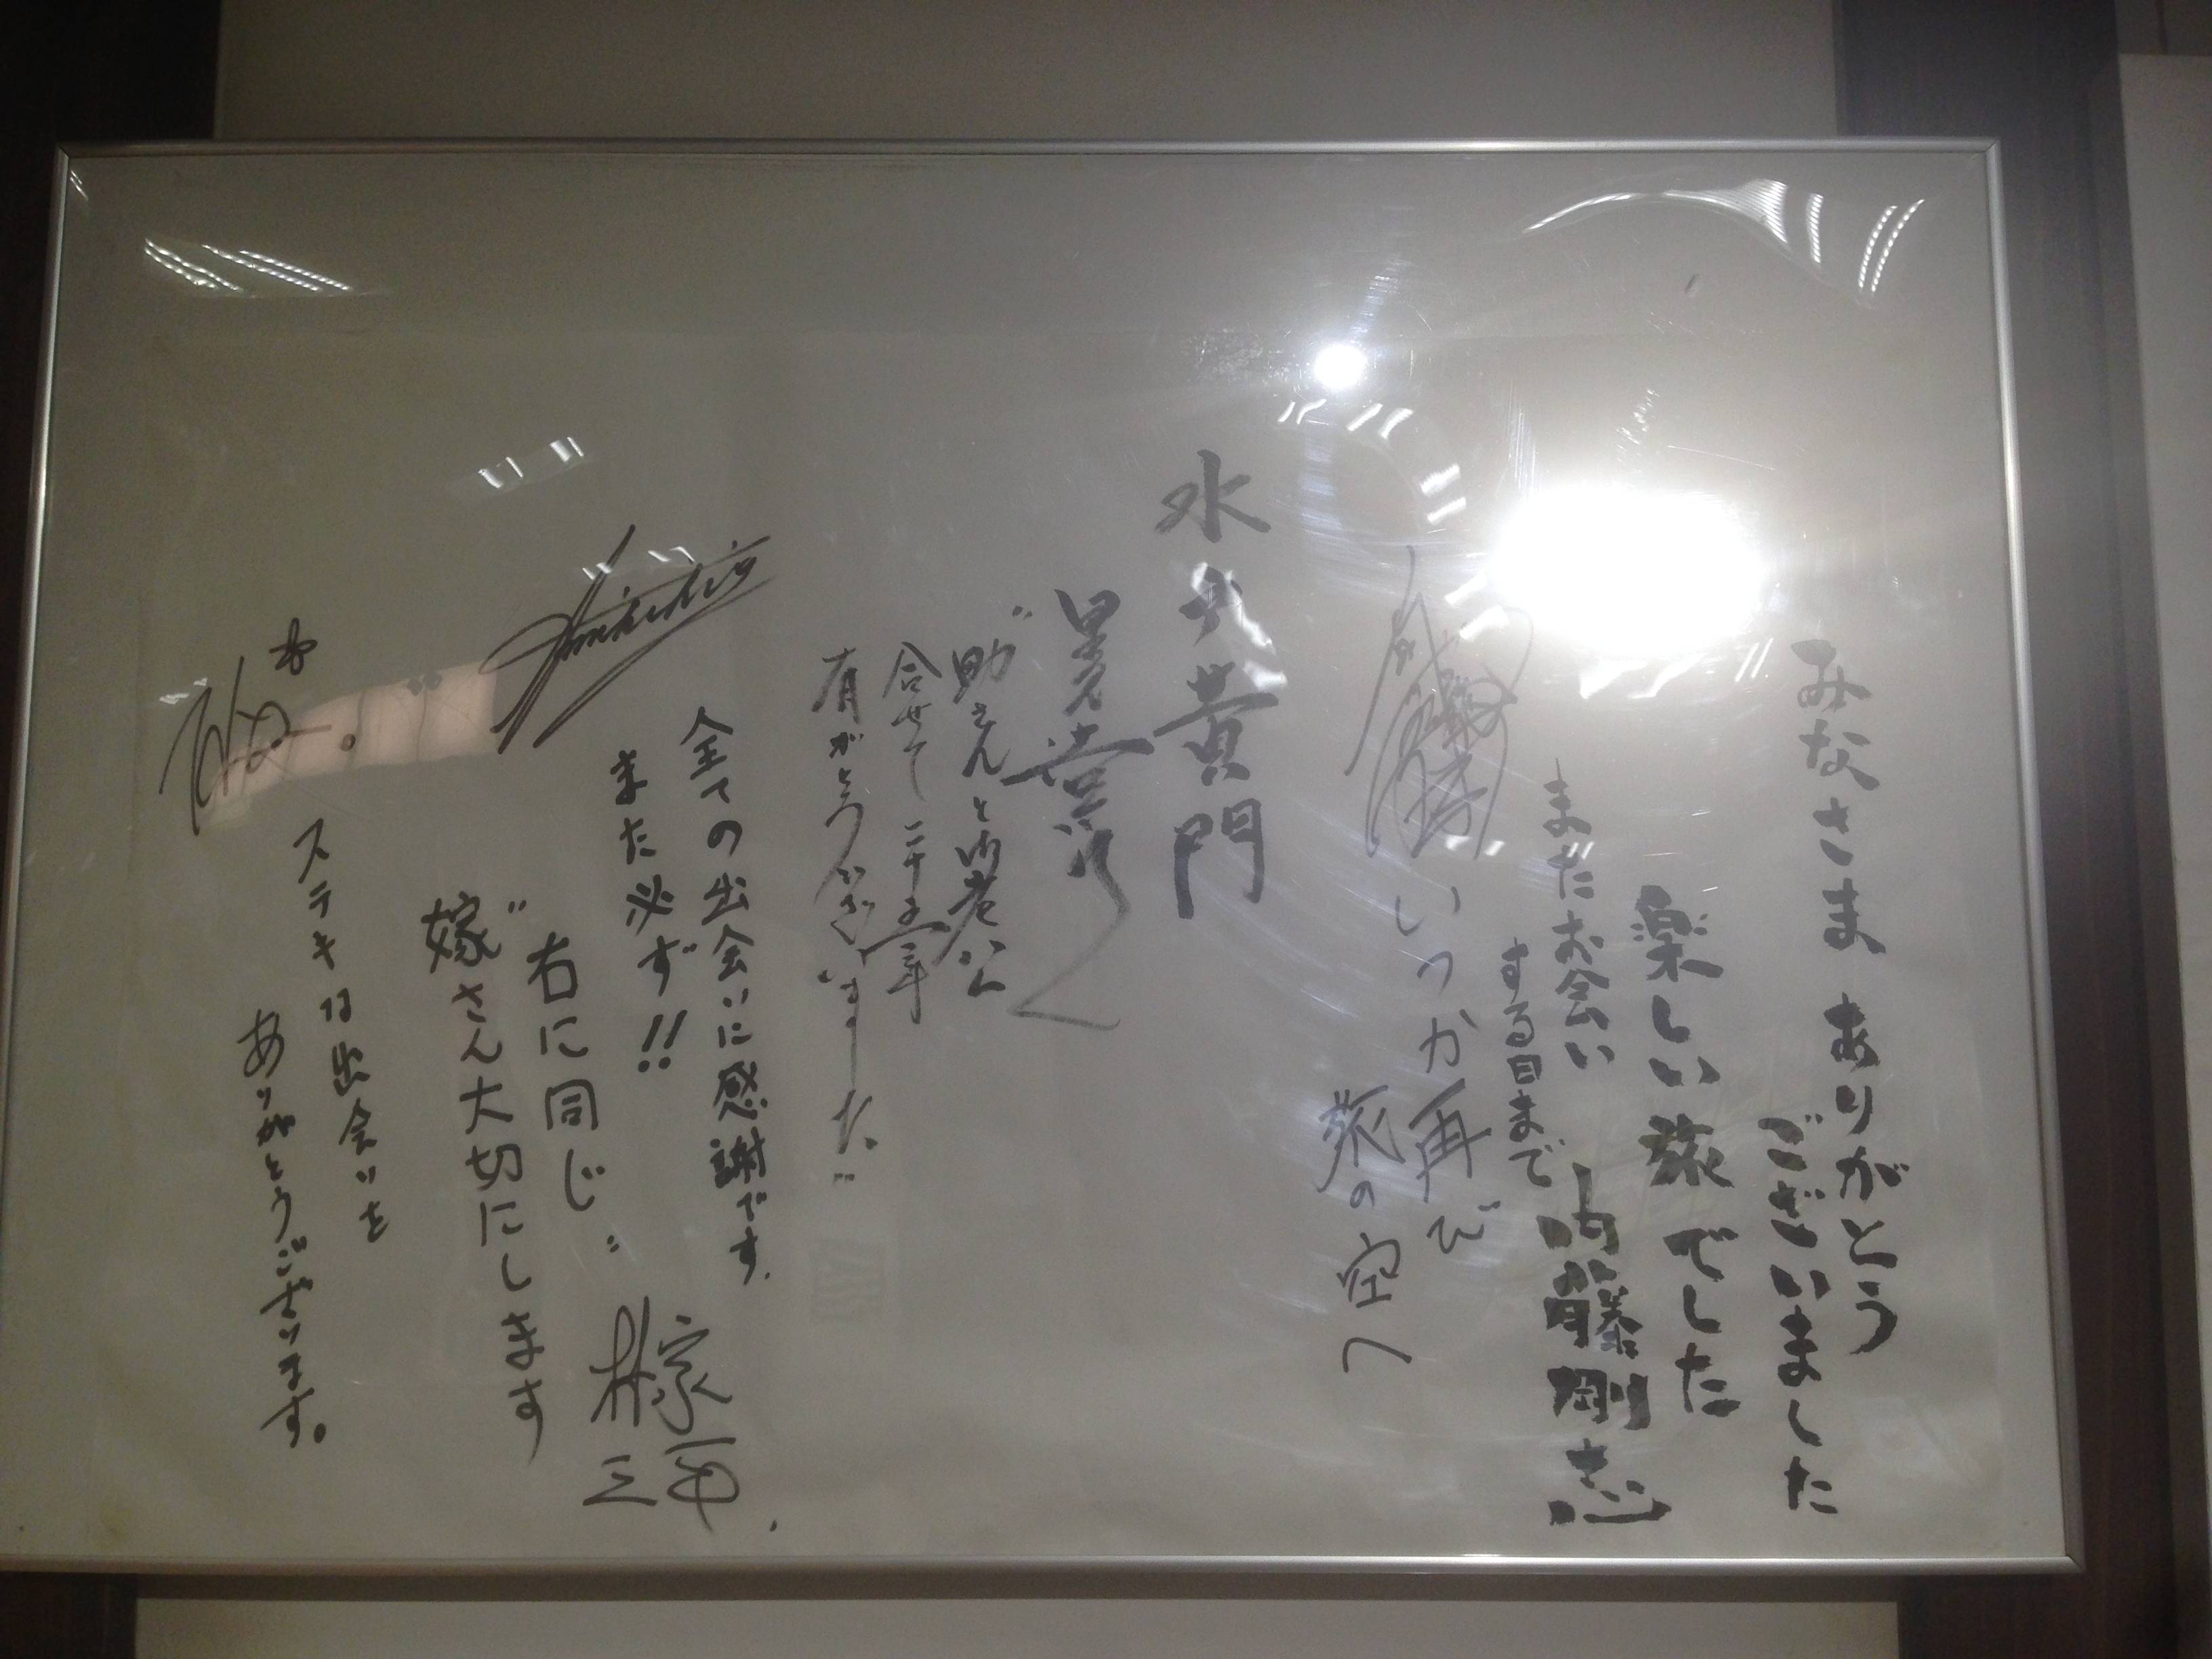 みなさま ありがとう
ございました
楽しい旅でした
またお会い
する日まで
内藤剛志
いつか再び
旅の空へ
水戸黄門
里見浩
助さんと御老公
合せて二十五年
有がとうございました
全ての出会いに感謝です。
また必ず!!
右に同じ
嫁さん大切にします
林家三平
ステキな出会いを
ありがとうございます。